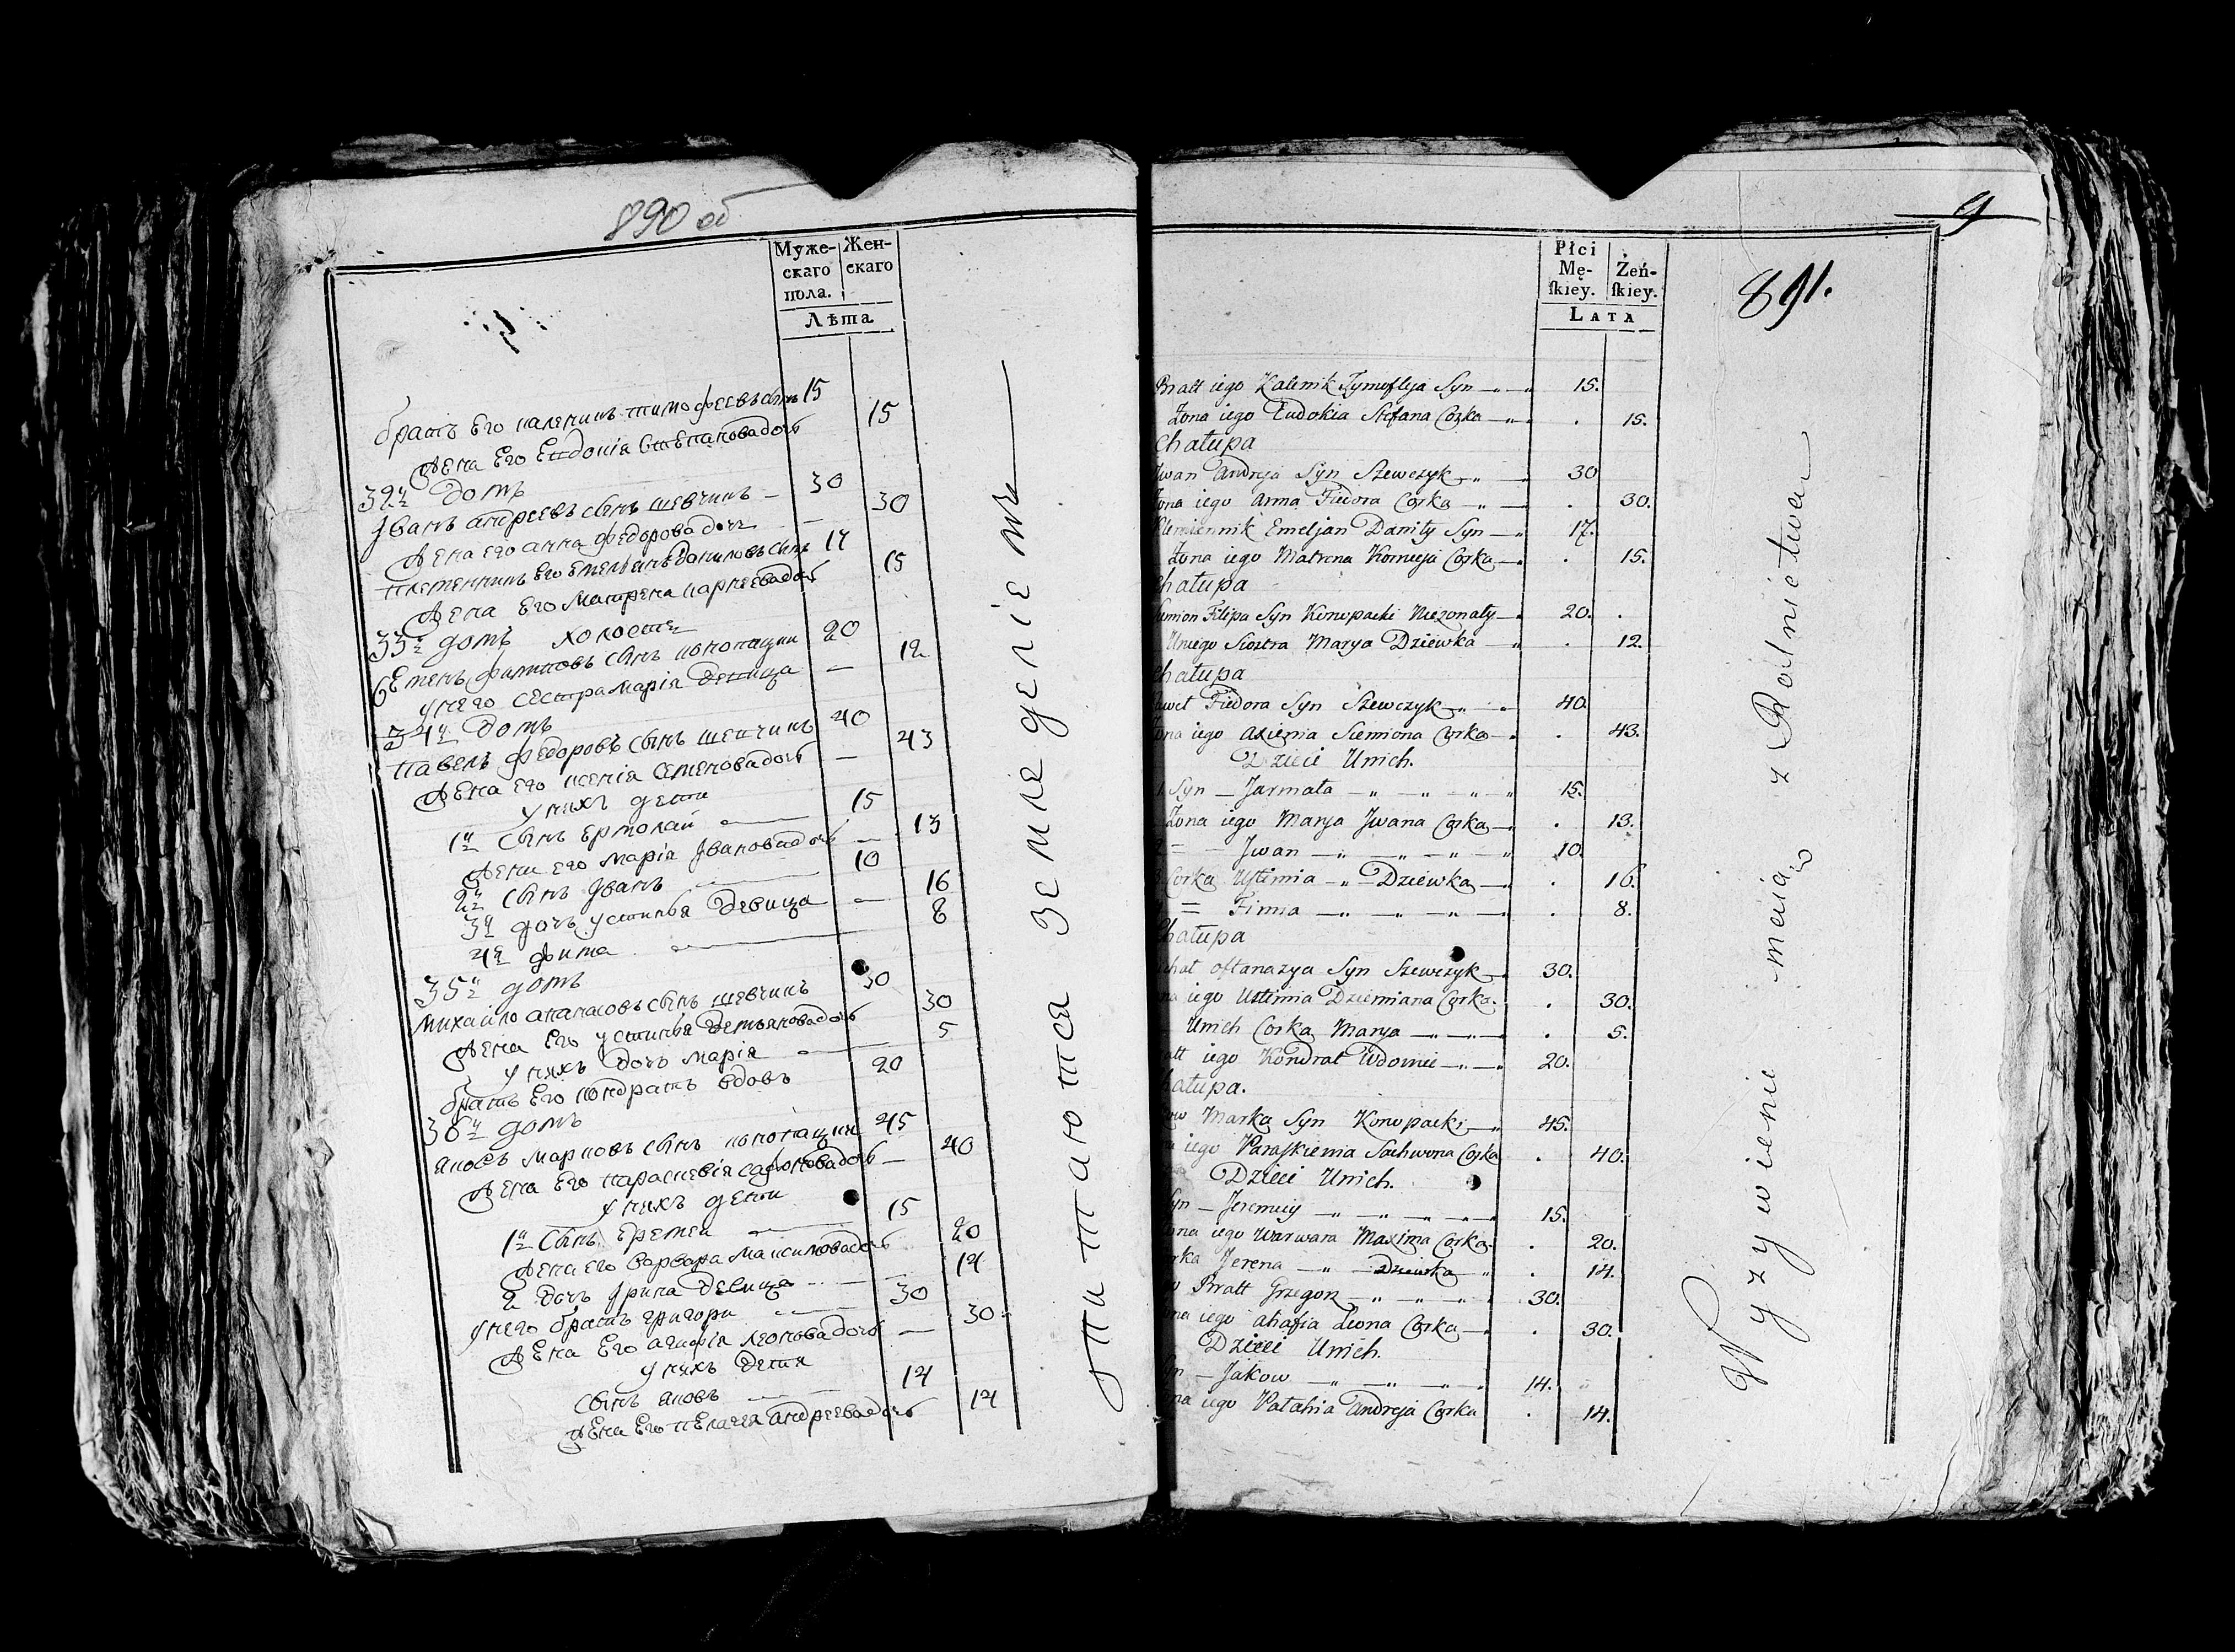 890 об
Муже-
скаго
пола.
Жен-
скаго
Лѣта
братъ Его каленикъ тимофеевъ сынъ 15
Жена Его Евдокія Степанова дочь 15
32й домъ
Іванъ андреевъ сынъ шевчикъ — 30
Жена его анна федорова дочь — 30
племенникъ Его Емельянъ Даниловъ сынъ 17
Жена Его Матрена карнеева дочь 15
33й домъ холостъ
Семенъ филиповъ сынъ конопацки 20
у него сестра марія девица — 12
34й домъ
Павелъ федоровъ сынъ шевчикъ 40
Жена Его ксенія семенова дочь — 43
у нихъ дети
1й сынъ ермолай — 15
Жена его марія Іванова дочь — 13
2й сынъ Іванъ — 10
3я дочь устинья девица — 16
4я фима — 8
35й домъ
михайло апанасовъ сынъ шевчикъ 30
Жена Его устинья демьянова дочь 30
у нихъ дочь марія — 5
братъ Его кондратъ вдовъ 20
36й домъ
яковъ марковъ сынъ конопацки 45
Жена Его параскевія сафонова дочь — 40
у нихъ дети
1й сынъ еремеи — 15
Жена его варвара максимова дочь 20
2 дочь Ірина девица — 14
у него братъ григори — 30
Жена Его агафія леонова дочь — 30
у нихъ дети
сынъ яковъ — 14
Жена Его пелагея андреева дочь 14
питаются земледеліемъ
9
891.
Płci
Mę-
ſkiey.
Żeń-
ſkiey.
LATA
Bratt iego Kalenik Tymofieja Syn — 15.
Żona iego Eudokia Stefana Corka — . 15.
Chałupa
Iwan Andreja Syn Szewczyk — 30
Żona iego Anna Fiedora Corka — . 30.
Plemiennik Emeljan Daniły Syn — 17.
Żona iego Matrena Korneja Corka — . 15.
Chałupa
Semion Filipa Syn Konopacki Nieżonaty — 20. .
U niego Siostra Marya Dziewka — . 12.
Chałupa
Paweł Fiedora Syn Szewczyk — 40.
Żona iego Axienia Siemiona Corka — . 43.
Dzieci Unich.
1. Syn — Jarmała — 15.
Żona iego Marya Iwana Corka — . 13.
2 = — Iwan — 10.
Corka Ustimia — Dziewka — . 16.
= Fimia — . 8.
Chałupa
ichał Oftanazya Syn Szewczyk — 30.
na iego Ustimia Dziemiana Corka. . 30.
Unich Corka Marya — . 5.
att iego Kondrat Wdowiec — 20.
hałupa.
ow Marka Syn Konopacki — 45.
a iego Paraſkiewia Sachwona Corka . 40.
Dzieci Unich.
Syn — Jeremiey — 15.
ona iego Warwara Maxima Corka . 20.
rka Jerena — Dziewka . 14.
o Bratt Grzegorz — 30.
ona iego Ahafia Leona Corka — . 30.
Dzieci Unich.
n — Jakow — 14.
na iego Pałahia Andreja Corka . 14.
Wyzywienie maią z Rolnictwa